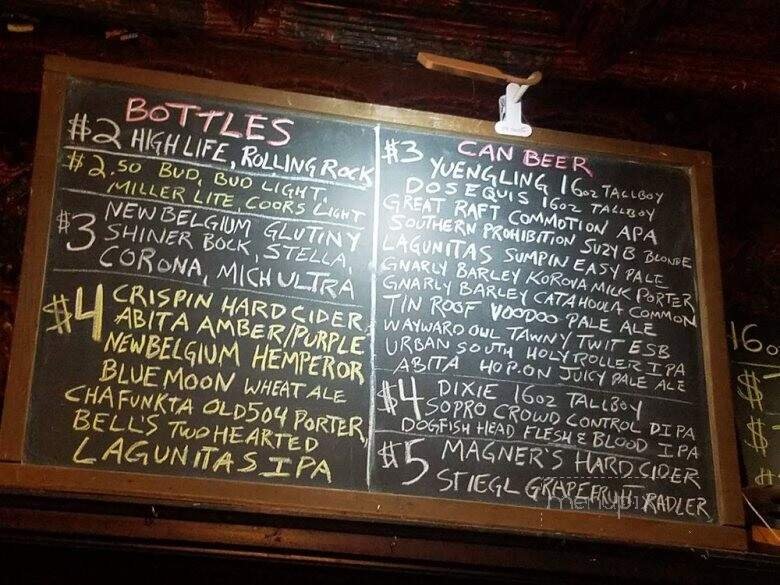 BOTTLES
$2 HIGH LIFE, ROLLING ROCK
$2.50 BUD, BUD LIGHT,
MILLER LITE, COORS LIGHT
$3 NEW BELGIUM GLUTINY
SHINER BOCK, STELLA,
CORONA, MICH ULTRA
$4 CRISPIN HARD CIDER,
ABITA AMBER/PURPLE
NEW BELGIUM HEMPEROR
BLUE MOON WHEAT ALE
CHAFUNKTA OLD 504 PORTER,
BELL'S TWO HEARTED
LAGUNITAS IPA
CAN BEER
$3 YUENGLING 16oz TALLBOY
DOS EQUIS 16oz TALLBOY
GREAT RAFT COMMOTION APA
SOUTHERN PROHIBITION SUZY B BLONDE
LAGUNITAS SUMPIN EASY PALE
GNARLY BARLEY KOROVA MILK PORTER
GNARLY BARLEY CATAHOULA COMMON
TIN ROOF VOODOO PALE ALE
WAYWARD OWL TAWNY TWIT ESB
URBAN SOUTH HOLY ROLLER IPA
ABITA HOP-ON JUICY PALE ALE
$4 DIXIE 16oz TALLBOY
SOPRO CROWD CONTROL DIPA
DOGFISH HEAD FLESH & BLOOD IPA
$5 MAGNER'S HARD CIDER
STIEGL GRAPEFRUIT RADLER
16o
$
$